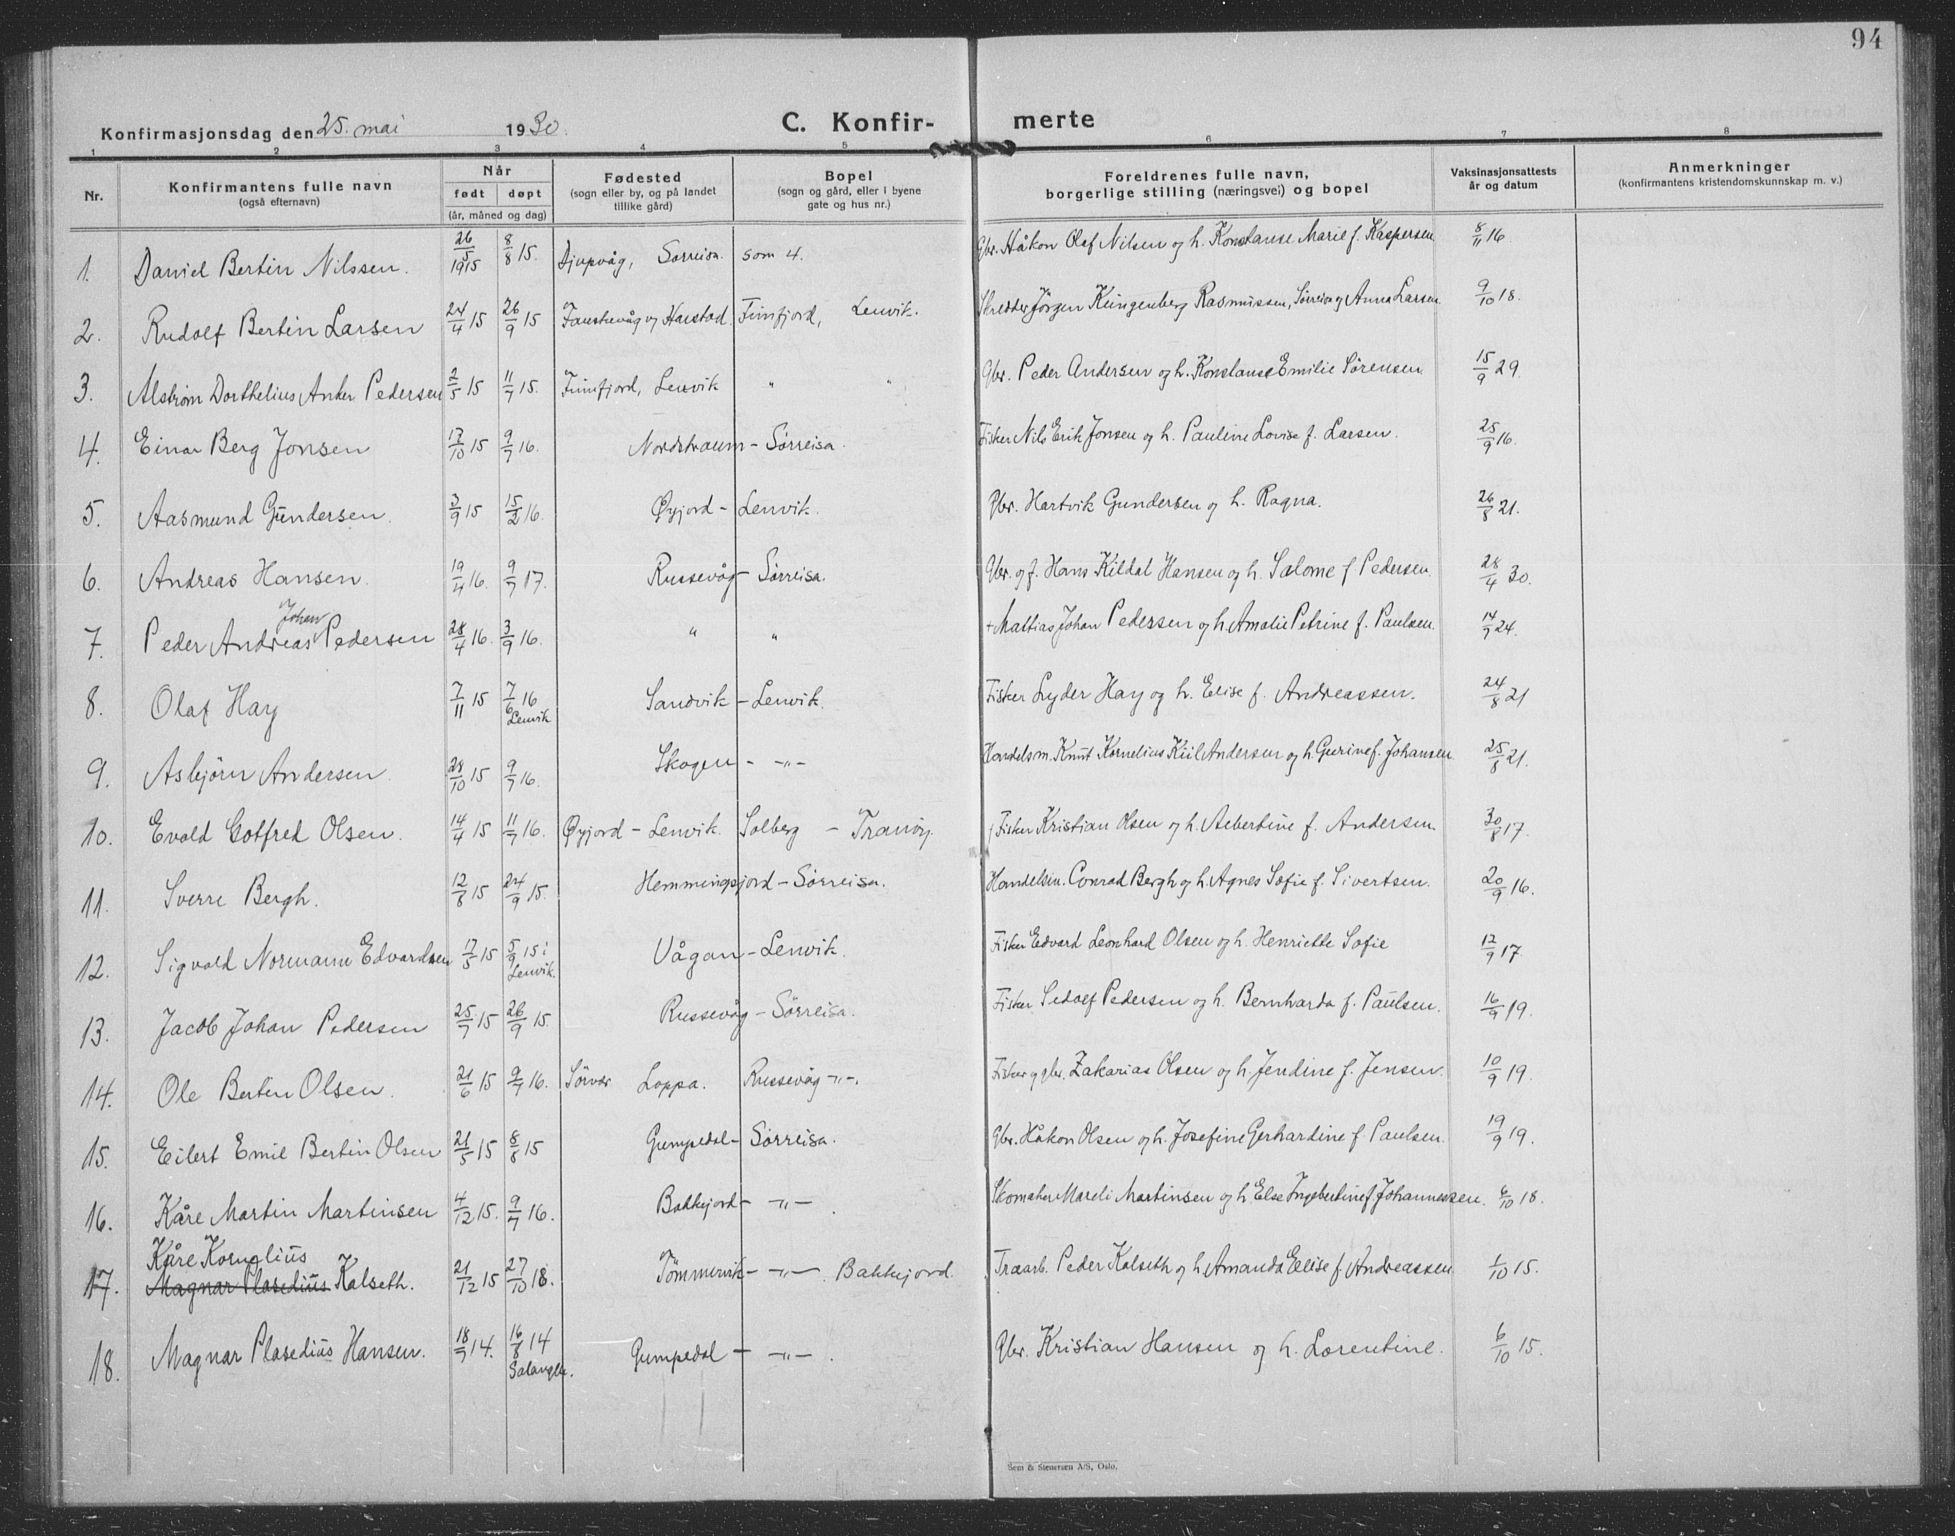 94
Konfirmasjonsdag den 25. mai 1930. C. Konfir- merte
1 2 3 4 5 6 7 8
Nr. Konfirmantens fulle navn (også efternavn) Når født døpt (år, måned og dag) Fødested (sogn eller by, og på landet tillike gård) Bopel (sogn og gård, eller i byene gate og hus nr.) Foreldrenes fulle navn, borgerlige stilling (næringsvei) og bopel Vaksinasjonsattests år og datum Anmerkninger (konfirmantens kristendomskunnskap m. v.)
1. Daniel Bertin Nilssen. 26/5 1915 8/8 15. Djupvåg, Sørreisa. som 4. Gbr. Håkon Olaf Nilsen og h. Konstanse Marie f. Kaspersen. 8/11 16.
2. Rudolf Bertin Larsen 24/4 15 26/9 15 Fauskevåg v/ Harstad. Finfjord, Lenvik. Skredder Jörgen Klingenberg Rasmussen, Sörreisa og Anna Larsen 9/10 18.
3. Alström Dorthelius Anker Pedersen 2/5 15 11/7 15. Finfjord, Lenvik " " Gbr. Peder Andersen og h. Konstanse Emilie Sörensen. 15/9 29.
4. Einar Berg Jonsen 17/10 15 9/7 16. Nordstraum - Sörreisa. Fisker Nils Erik Jonsen og h. Pauline Lovise f. Larsen. 25/9 16.
5. Aasmund Gundersen. 3/9 15 15/2 16. Øyjord - Lenvik. Gbr. Hartvik Gundersen og h. Ragna. 26/8 21.
6. Andreas Hansen. 19/4 16. 9/7 17. Russevåg - Sörreisa. Gbr. og f. Hans Kildal Hansen og h. Salome f. Pedersen. 28/4 30.
7. Peder Andreas Johan Pedersen 28/4 16. 3/9 16. " " + Mattias Johan Pedersen og h. Amalie Petrine f. Paulsen. 14/9 24.
8. Olaf Hay 7/11 15 7/6 16 Lenvik Sandvik - Lenvik. Fisker Lyder Hay og h. Elise f. Andreassen. 24/8 21
9. Asbjörn Andersen. 28/10 15 9/7 16. Skogen - -"- Handelsm. Knut Kornelius Kiil Andersen og h. Gurine f. Johansen 25/8 21.
10. Evald Gotfred Olsen. 14/4 15 11/7 16. Øyjord - Lenvik. Solberg - Tranöy. Fisker Kristian Olsen og h. Albertine f. Andersen. 30/8 17.
11. Sverre Bergh. 12/8 15 24/9 15. Hemmingsjord - Sörreisa. Handelsm. Conrad Bergh og h. Agnes Sofie f. Sivertsen. 20/9 16.
12. Sigvald Normann Edvardsen 17/5 15 5/9 15 i Lenvik. Vågan - Lenvik. Fisker Edvard Leonhard Olsen og h. Henriette Sofie 12/9 17
13. Jacob Johan Pedersen 25/7 15 26/9 15. Russevåg - Sörreisa. Fisker Sedolf Pedersen og h. Bernharda f. Paulsen. 16/9 19.
14. Ole Bertin Olsen. 21/6 15 9/7 16. Sörvær Loppa. Russevåg -"-. Fisker og gbr. Zakarias Olsen og h. Jendine f. Jensen. 10/9 19.
15. Eilert Emil Bertin Olsen 21/5 15 8/8 15 Gumpedal - Sörreisa. Gbr. Håkon Olsen og h. Josefine Gerhardine f. Paulsen. 19/9 19.
16. Kåre Martin Martinsen 4/12 15. 9/7 16. Bakkejord - -"- . Skomaker Mareli Martinsen og h. Else Ingebertine f. Johannessen. 6/10 18.
17. Kåre Kornelius Magnar Plasedius Kalseth. 21/12 15 27/10 18. Tömmervik - -"- . Bakkejord. Traarb. Peder Kalseth og h. Amanda Elise f. Andreassen 1/10 15.
18. Magnar Plasedius Hansen. 18/7 14. 16/8 14 Salangen. Gumpedal - -"- . Gbr. Kristian Hansen og h. Lorentine. 6/10 15.
Sem & Stenersen A/S, Oslo.